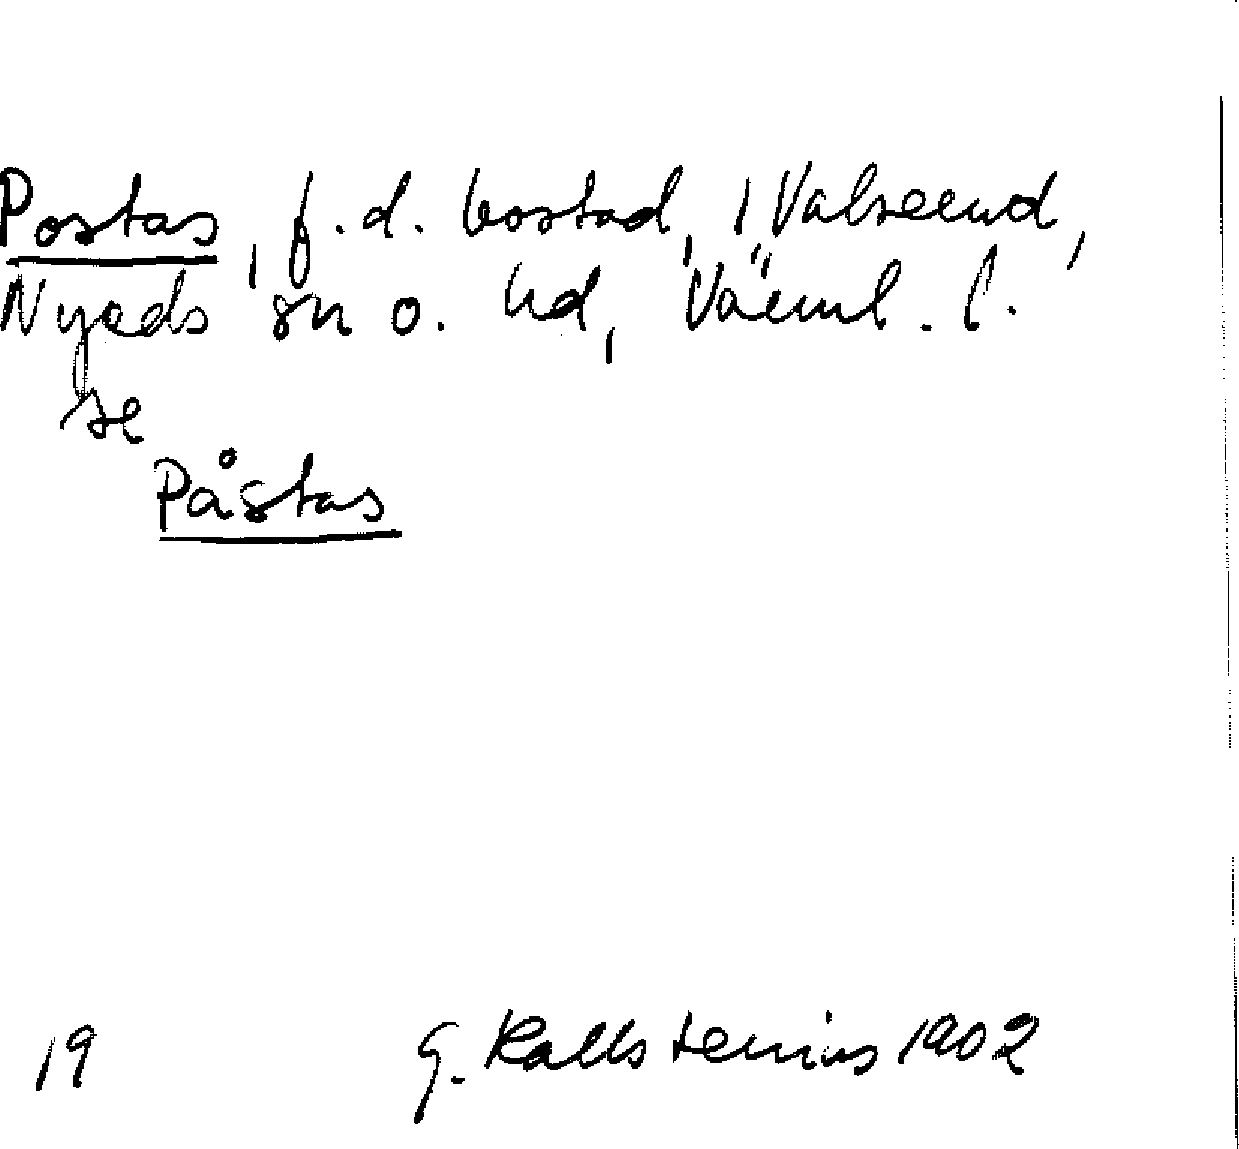 Postas, f.d. bostad, i Valserud,
Nyeds sn o. hd, Värml. l.
se
Påstas
19 G. Kallstenius 1902